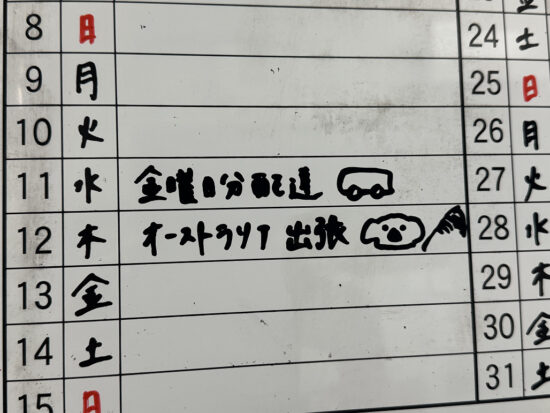 8 日
9 月
10 火
11 水 金曜日分配達
12 木 オーストラリア 出張
13 金
14 土
15 日
金
24 土
25 日
26 月
27 火
28 水
29 木
30 金
31 土